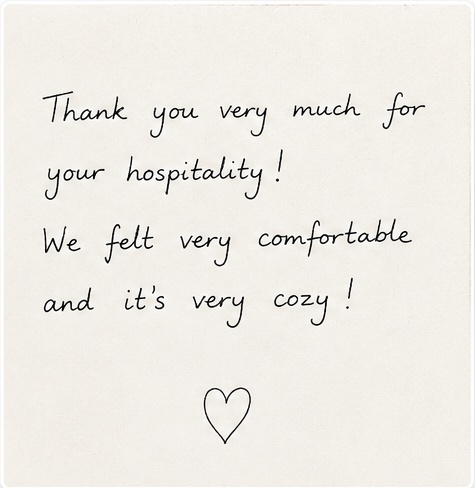 Thank you very much for
your hospitality!
We felt very comfortable
and it's very cozy!